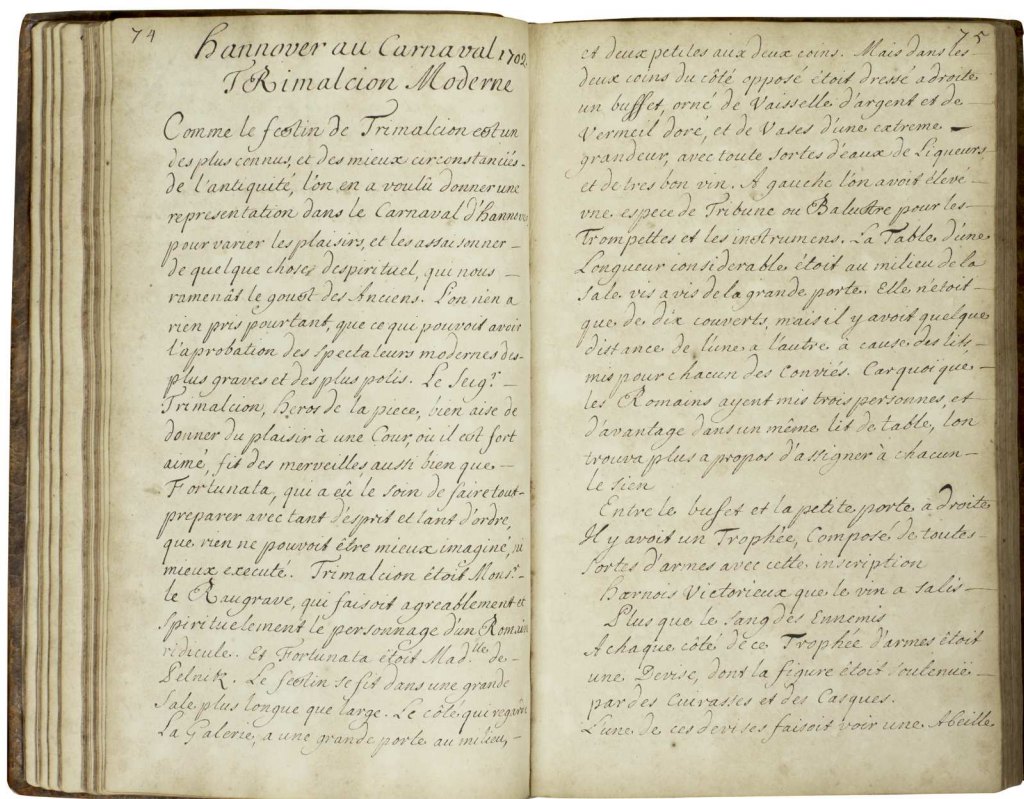 74
Hannover au Carnaval 1702
TRimalcion Moderne
Comme le festin de Trimalcion est un
des plus connus, et des mieux circonstanciés-
de l'antiquité, l'on en a voulû donner une
representation dans le Carnaval d'hannov
pour varier les plaisirs, et les assaisonner –
de quelque chose despirituel, qui nous –
ramenât le goust des Anciens. L'on n'en a
rien pris pourtant, que ce qui pouvoit avoir
l'aprobation des spectateurs modernes des-
plus graves et des plus polis. Le Seigr –
Trimalcion, heros de la piece, bien aise de
donner du plaisir à une Cour, où il est fort
aimé, fit des merveilles aussi bien que –
Fortunata, qui a eû le soin de faire tout-
preparer avec tant d'esprit et tant d'ordre,
que rien ne pouvoit être mieux imaginé, ni
mieux executé. Trimalcion étoit Monsr.
le Raugrave, qui faisoit agreablement et
spirituelement le personnage d'un Romain
ridicule. Et Fortunata étoit Madlle de-
Pelnitz. Le festin se fit dans une grande
Sale plus longue que large. Le côté qui regard
La Galerie, a une grande porte au milieu, –
75
et deux petites aux deux coins. Mais dans les
deux coins du côté opposé étoit dressé a droite
un buffet, orné de Vaisselle d'argent et de
Vermeil doré, et de Vases d'une extreme –
grandeur, avec toute sortes d'eaux de Liqueurs
et de tres bon vin. A gauche l'on avoit élevé –
vne espece de Tribune ou Balustre pour les-
Trompettes et les instrumens. La Table d'une
Longueur considerable étoit au milieu de la
Sale vis a vis de la grande porte. Elle n'etoit
que de dix couverts, mais il y avoit quelque
distance de l'une a l'autre à cause des lits-
mis pour chacun des Conviés. Car quoi que –
les Romains ayent mis trois personnes, et
d'avantage dans un même lit de table, l'on
trouva plus a propos d'assigner à chacun-
le sien
Entre le bufet et la petite porte à droite
Il y avoit un Trophée, Composé de toutes-
sortes d'armes avec cette inscription
Harnois Victorieux que le vin a salis –
Plus que le sang des Ennemis
A chaque côté de ce Trophée d'armes étoit
une Devise, dont la figure étoit soutenuë –
par des Cuirasses et des Casques.
L'une de ces devises faisoit voir une Abeille